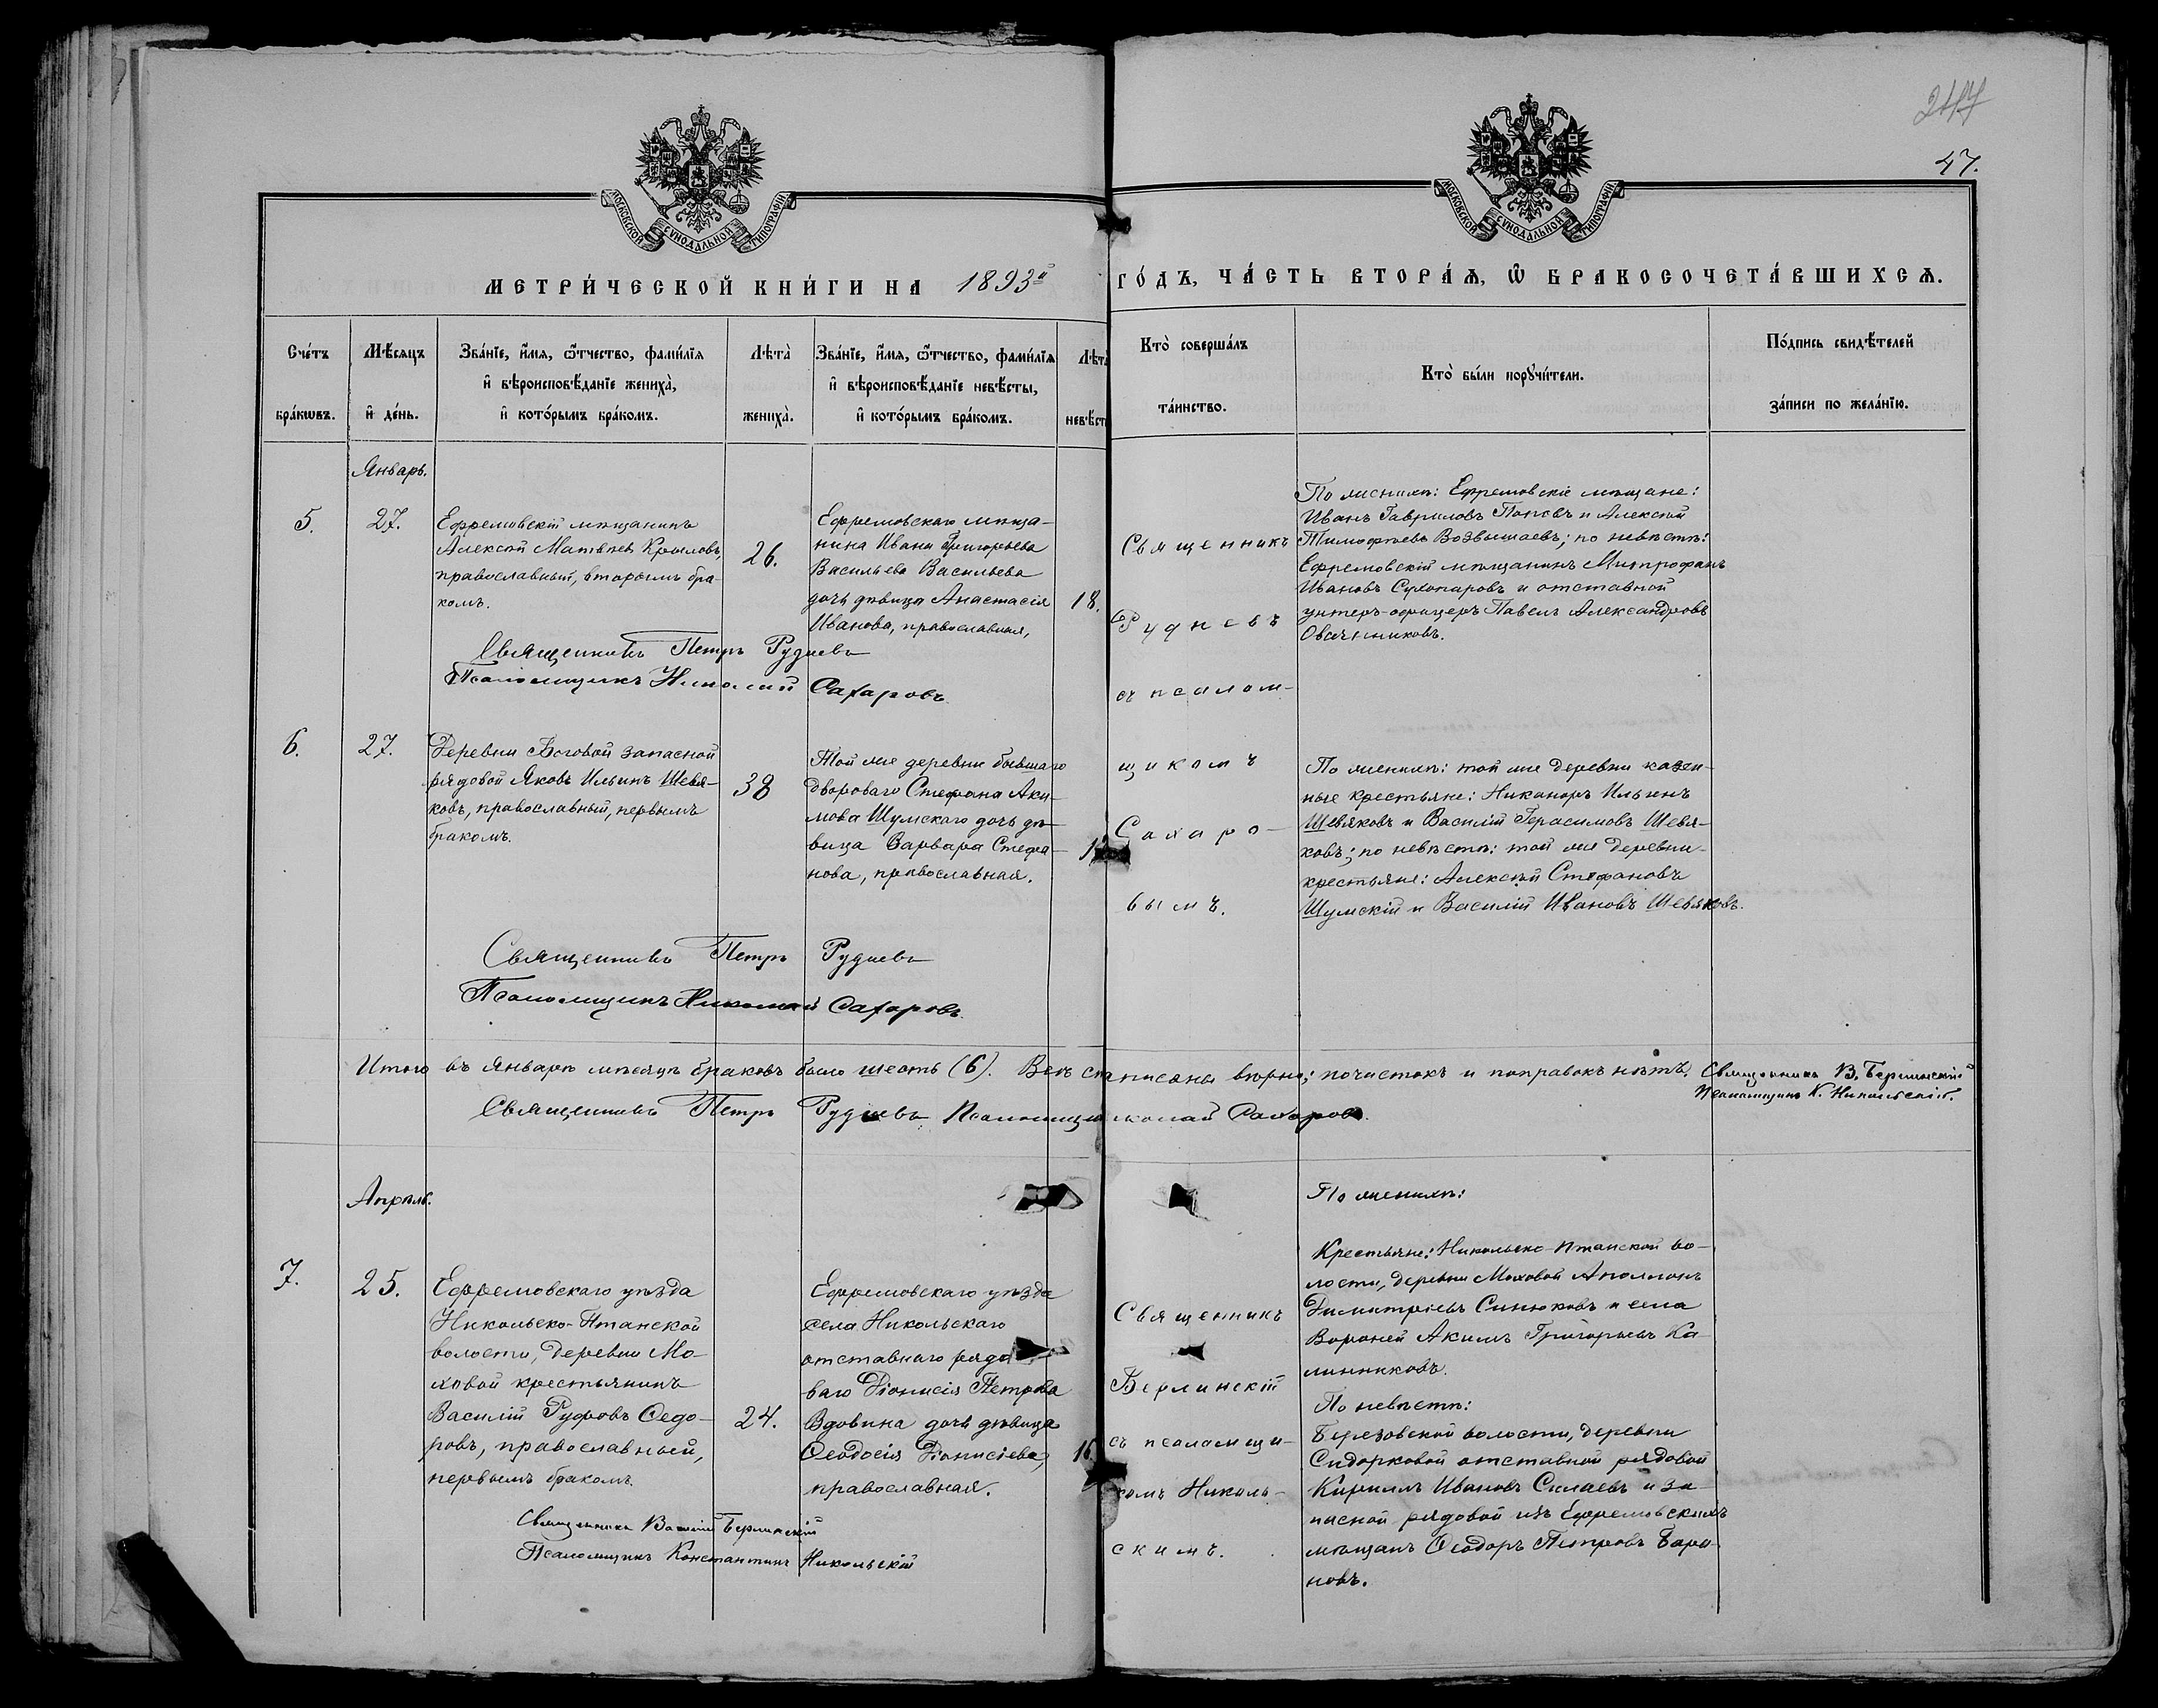 247
47.
МОСКОВСКОЙ СѴНОДАЛЬНОЙ ТИПОГРАФІИ
МОСКОВСКОЙ СѴНОДАЛЬНОЙ ТИПОГРАФІИ
МЕТРИ́ЧЕСКОЙ КНИ́ГИ НА 1893й ГО́ДЪ, ЧА́СТЬ ВТОРА́Ѧ, Ѽ БРАКОСОЧЕТА́ВШИХСѦ.
Сче́тъ
бра́кѡвъ.
Мѣ́сѧцъ
и҆ де́нь.
Зва́нїе, и҆́мѧ, ѻ҆́тчество, фами́лїѧ
и҆ вѣроисповѣ́данїе жениха̀,
и҆ кото́рымъ бра́комъ.
Лѣта̀
жениха̀.
Зва́нїе, и҆́мѧ, ѻ҆́тчество, фами́лїѧ
и҆ вѣроисповѣ́данїе невѣ́сты,
и҆ кото́рымъ бра́комъ.
Лѣта
невѣст
Кто̀ соверша́лъ
та́инство.
Кто̀ бы́ли порꙋчи́тели.
По́дпись свидѣ́телей
за́писи по жела́нїю.
Январь.
5.
27.
Ефремовскій мѣщанинъ
Алексѣй Матвѣевъ Крыловъ,
православный, вторымъ бра-
комъ.
26.
Ефремовскаго мѣща-
нина Ивана Григорьева
Васильева Васильева
дочь дѣвица Анастасія
Иванова, православная,
18.
Священникъ
Рудневъ
съ псалом-
щикомъ
Сахаро-
вымъ.
По женихѣ: Ефремовскіе мѣщане:
Иванъ Гавриловъ Поповъ и Алексѣй
Тимофѣевъ Возвышаевъ; по невѣстѣ:
Ефремовскій мѣщанинъ Митрофанъ
Ивановъ Сухопаровъ и отставной
унтеръ-офицеръ Павелъ Александровъ
Овчинниковъ.
Священникъ Петръ Рудневъ
Псаломщикъ Николай Сахаровъ
6.
27.
Деревни Боговой запасной
рядовой Яковъ Ильинъ Шевя-
ковъ, православный, первымъ
бракомъ.
38
Той же деревни бывшаго
двороваго Стефана Аки-
мова Шумскаго дочь дѣ-
вица Варвара Стефа-
нова, православная.
По женихѣ: той же деревни казен-
ные крестьяне: Никаноръ Ильинъ
Шевяковъ и Василій Герасимовъ Шевя-
ковъ; по невѣстѣ: той же деревни
крестьяне: Алексѣй Стефановъ
Шумскій и Василій Ивановъ Шевяковъ.
Священникъ Петръ Рудневъ
Псаломщикъ Николай Сахаровъ.
Итого въ Январѣ мѣсяцѣ браковъ было шесть (6). Всѣ писаны вѣрно; почистокъ и поправокъ нѣтъ. Священникъ В. Берлинскій
Псаломщикъ К. Никольскій.
Священникъ Петръ Рудневъ Псаломщи колай Сахаровъ.
Апрѣль.
7.
25.
Ефремовскаго уѣзда
Никольско-Птанской
волости, деревни Мо-
ховой крестьянинъ
Василій Руфовъ Ѳедо-
ровъ, православный,
первымъ бракомъ.
24.
Ефремовскаго уѣзда
села Никольскаго
отставнаго рядо
ваго Діонисія Петрова
Вдовина дочь дѣвица
Ѳеодосія Діонисіева,
православная.
16.
Священникъ
Берлинскій
съ псаломщи-
комъ Николь-
скимъ.
По женихѣ:
Крестьяне: Никольско-Птанской во-
лости, деревни Моховой Аполлонъ
Димитріевъ Синюковъ и села
Вороней Акимъ Григорьевъ Ка-
линниковъ.
По невѣстѣ:
Березовской волости, деревни
Сидорковой отставной рядовой
Кириллъ Ивановъ Силаевъ и за-
пасной рядовой изъ Ефремовскихъ
мѣщанъ Ѳеодоръ Петровъ Бара-
новъ.
Священникъ Василій Берлинскій
Псаломщикъ Константинъ Никольскій